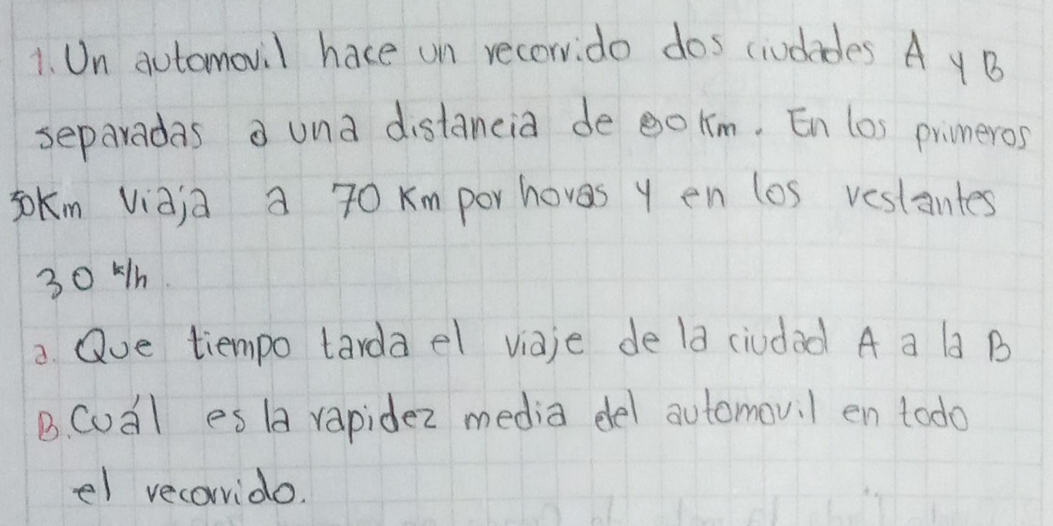 1. Un automovil hace un recorrido dos ciudades A y B
separadas a una distancia de 80 km. En los primeros
50Km viaja a 70 Km por horas y en los restantes
30 k/h.
a. Que tiempo tarda el viaje de la ciudad A a la B
B. Cuál es la rapidez media del automovil en todo
el recorrido.